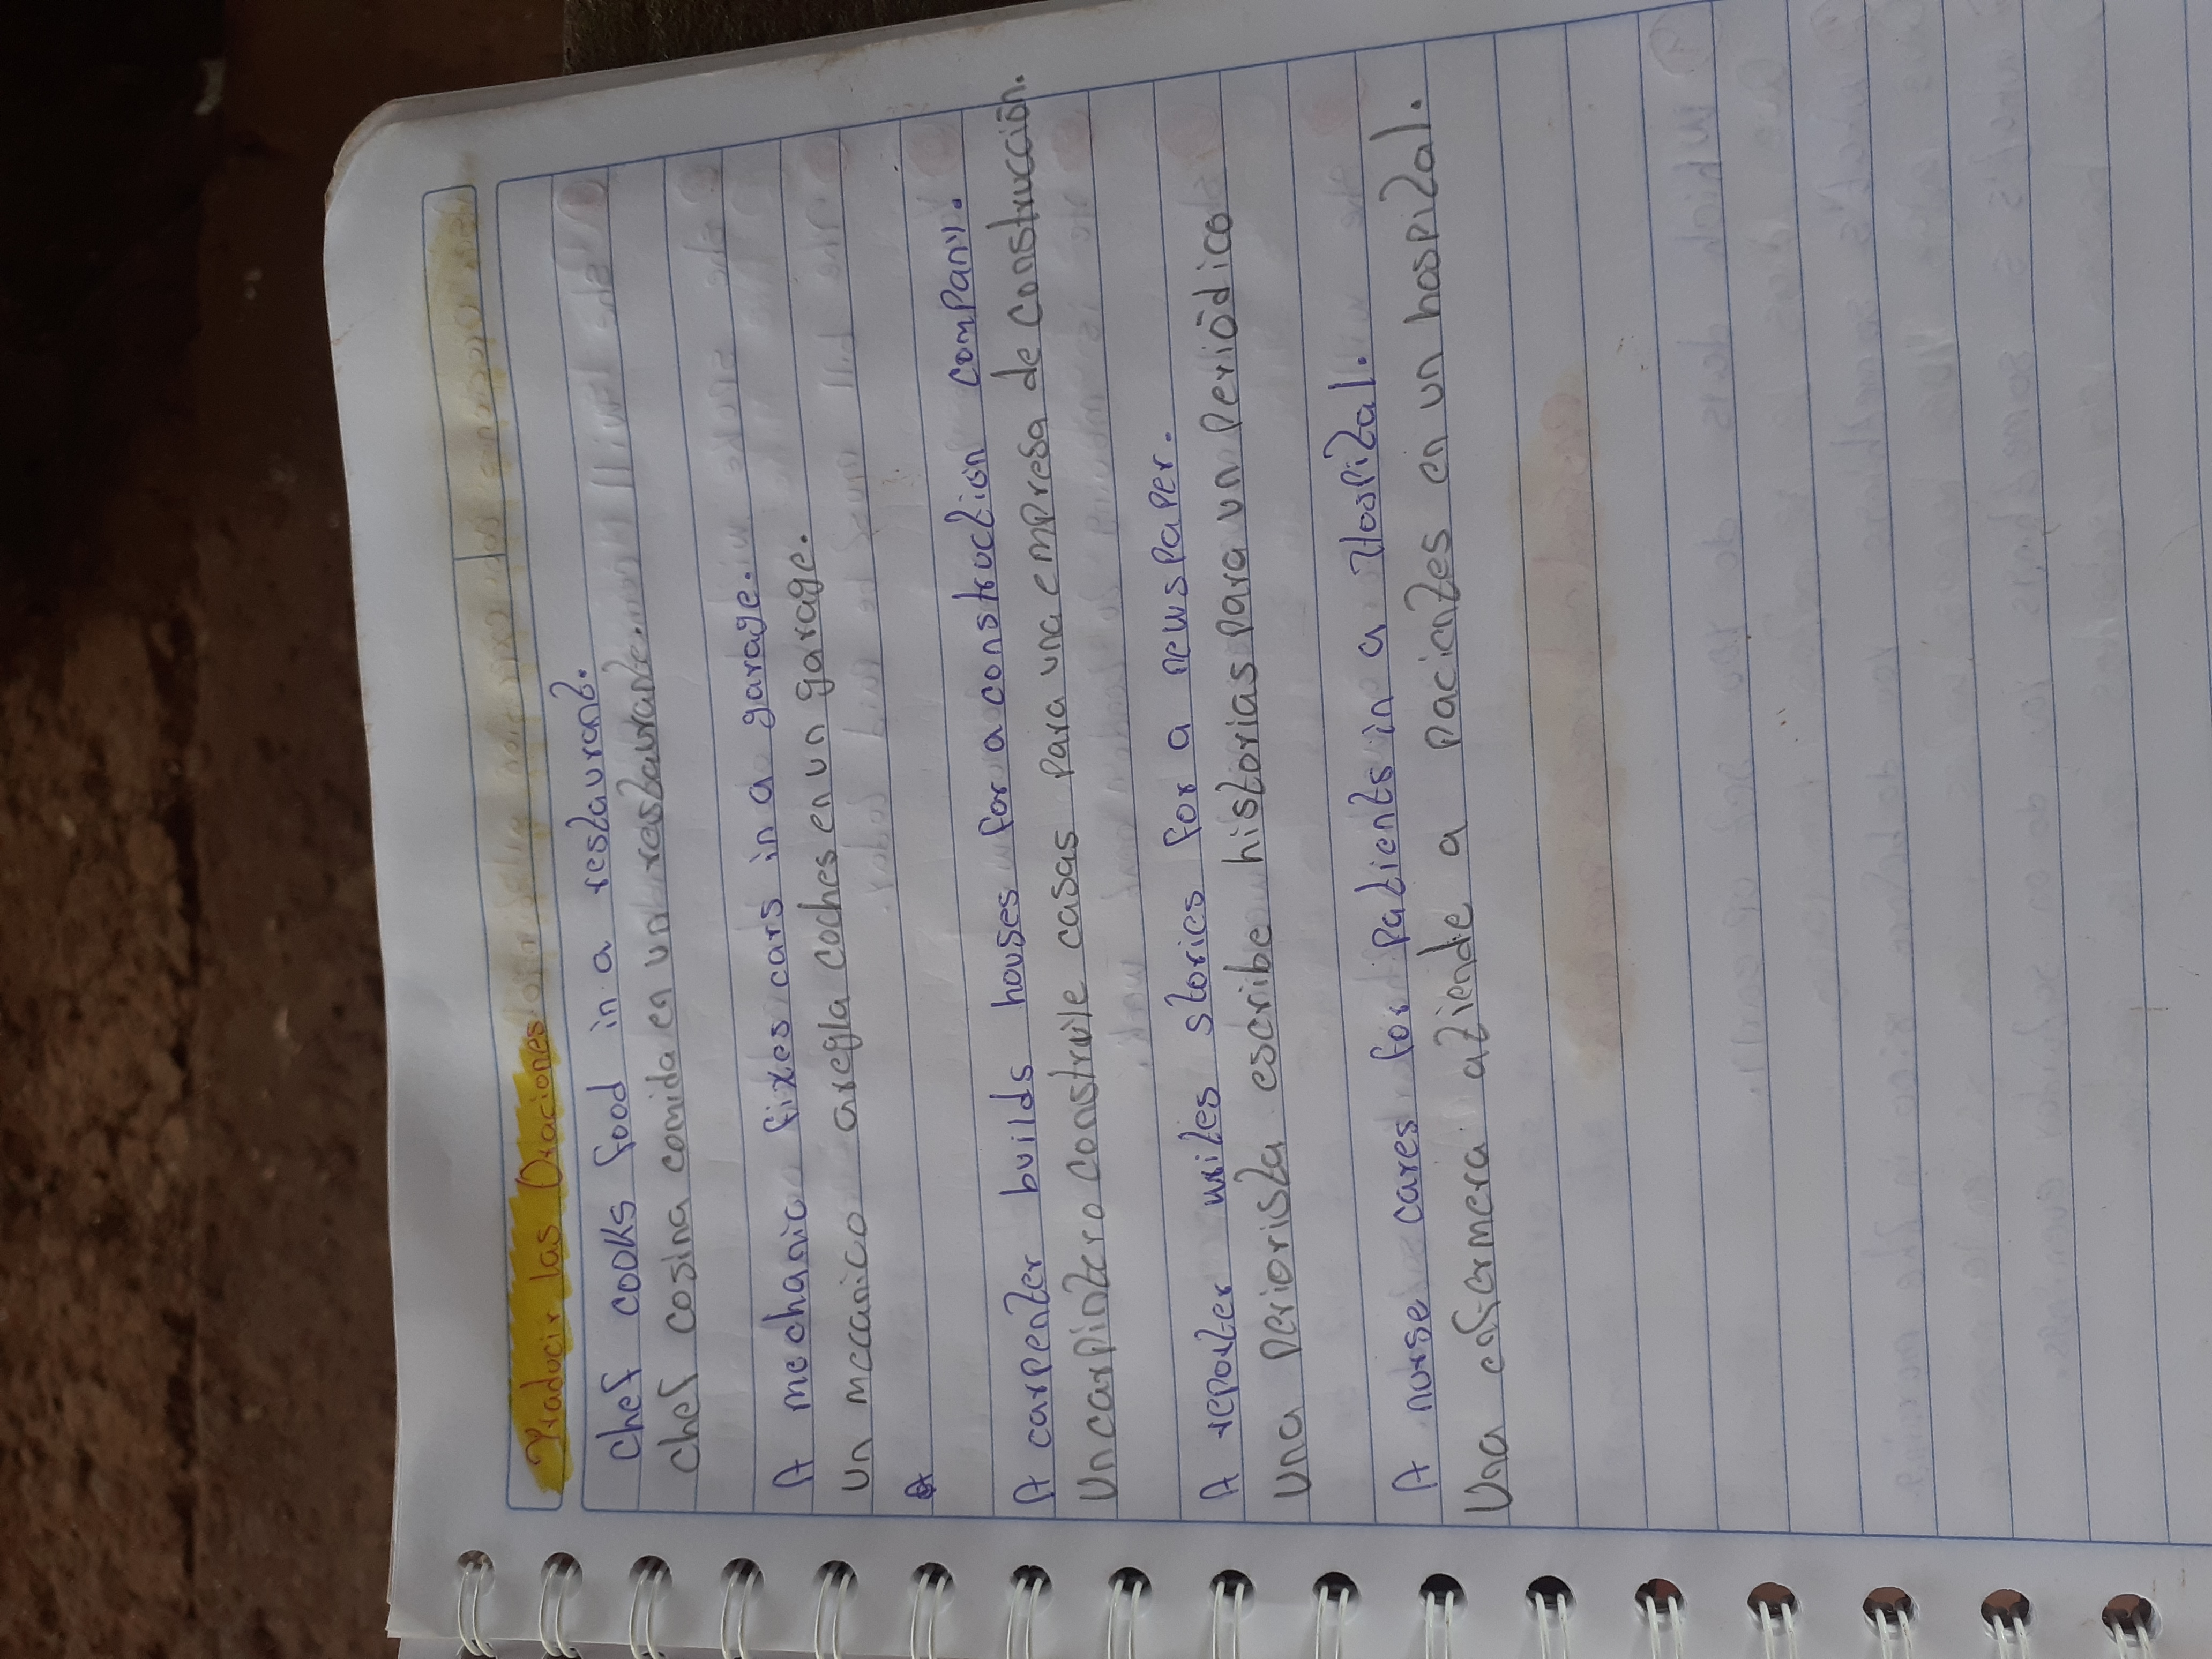 Traducir las Oraciones
Chef cooks food in a restaurant.
Chef cosina comida en un restaurante.
A mechanic fixes cars in a garage.
Un mecanico aregla coches en un garage.
A
A carpenter builds houses for a construction company.
Un carpintero construile casas para una empresa de construcción.
A repoter writes stories for a newspaper.
Una periorista escribe historias para un periódico
A nurse cares for patients in a Hospital.
Una enfermera atiende a pacientes en un hospital.